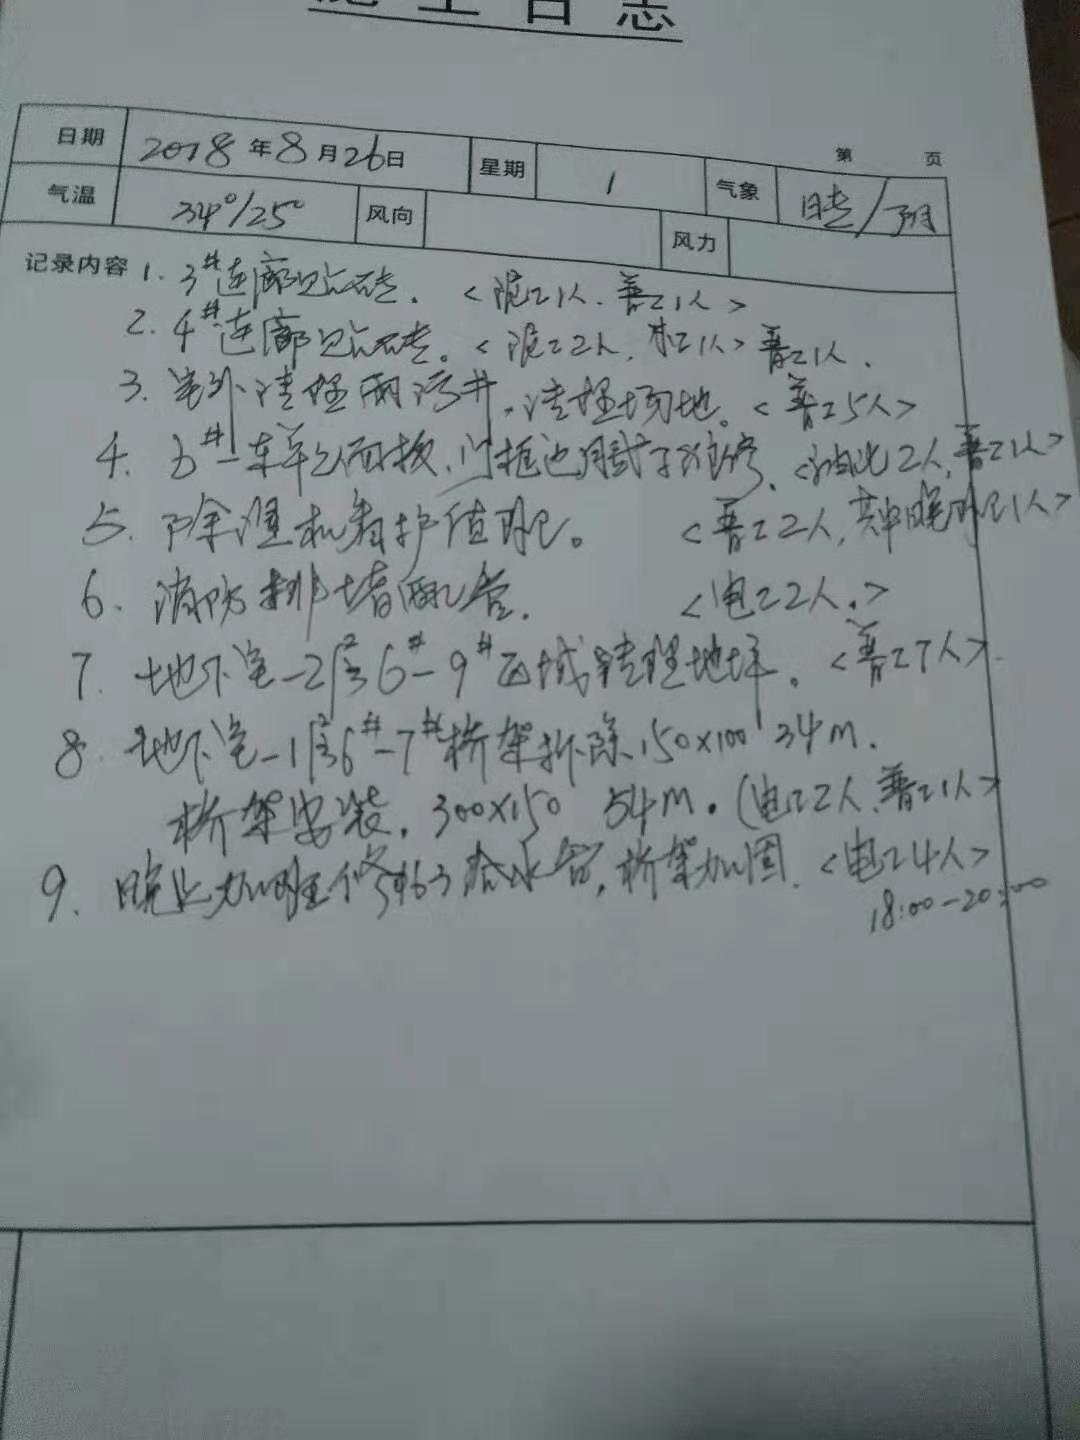 施工日志
第 页
日期 2018年8月26日 星期 1 气象 晴/阴
气温 34°/25° 风向 风力
记录内容 1. 3#连廊贴砖. <泥工1人.普工1人>
2. 4#连廊贴砖。<泥工2人,木工1人>普工1人.
3. 室外清理雨污井,清理场地。<普工5人>
4. 6#一车车 面板,门框边 维修. <油 2人,普工1人>
5. 除湿机看护值班。 <普工2人,其中晚班1人>
6. 消防排堵配管. <电工2人.>
7. 地下室-2层6#-9#区域清理地坪。<普工7人>
8. 地下室-1层6#-7#桥架拆除.150×100 34m.
桥架安装. 300×150 54m. (电工2人.普工1人>
9. 晚上加班修 63给水管,桥架加固. <电工4人>
18:00-20:00